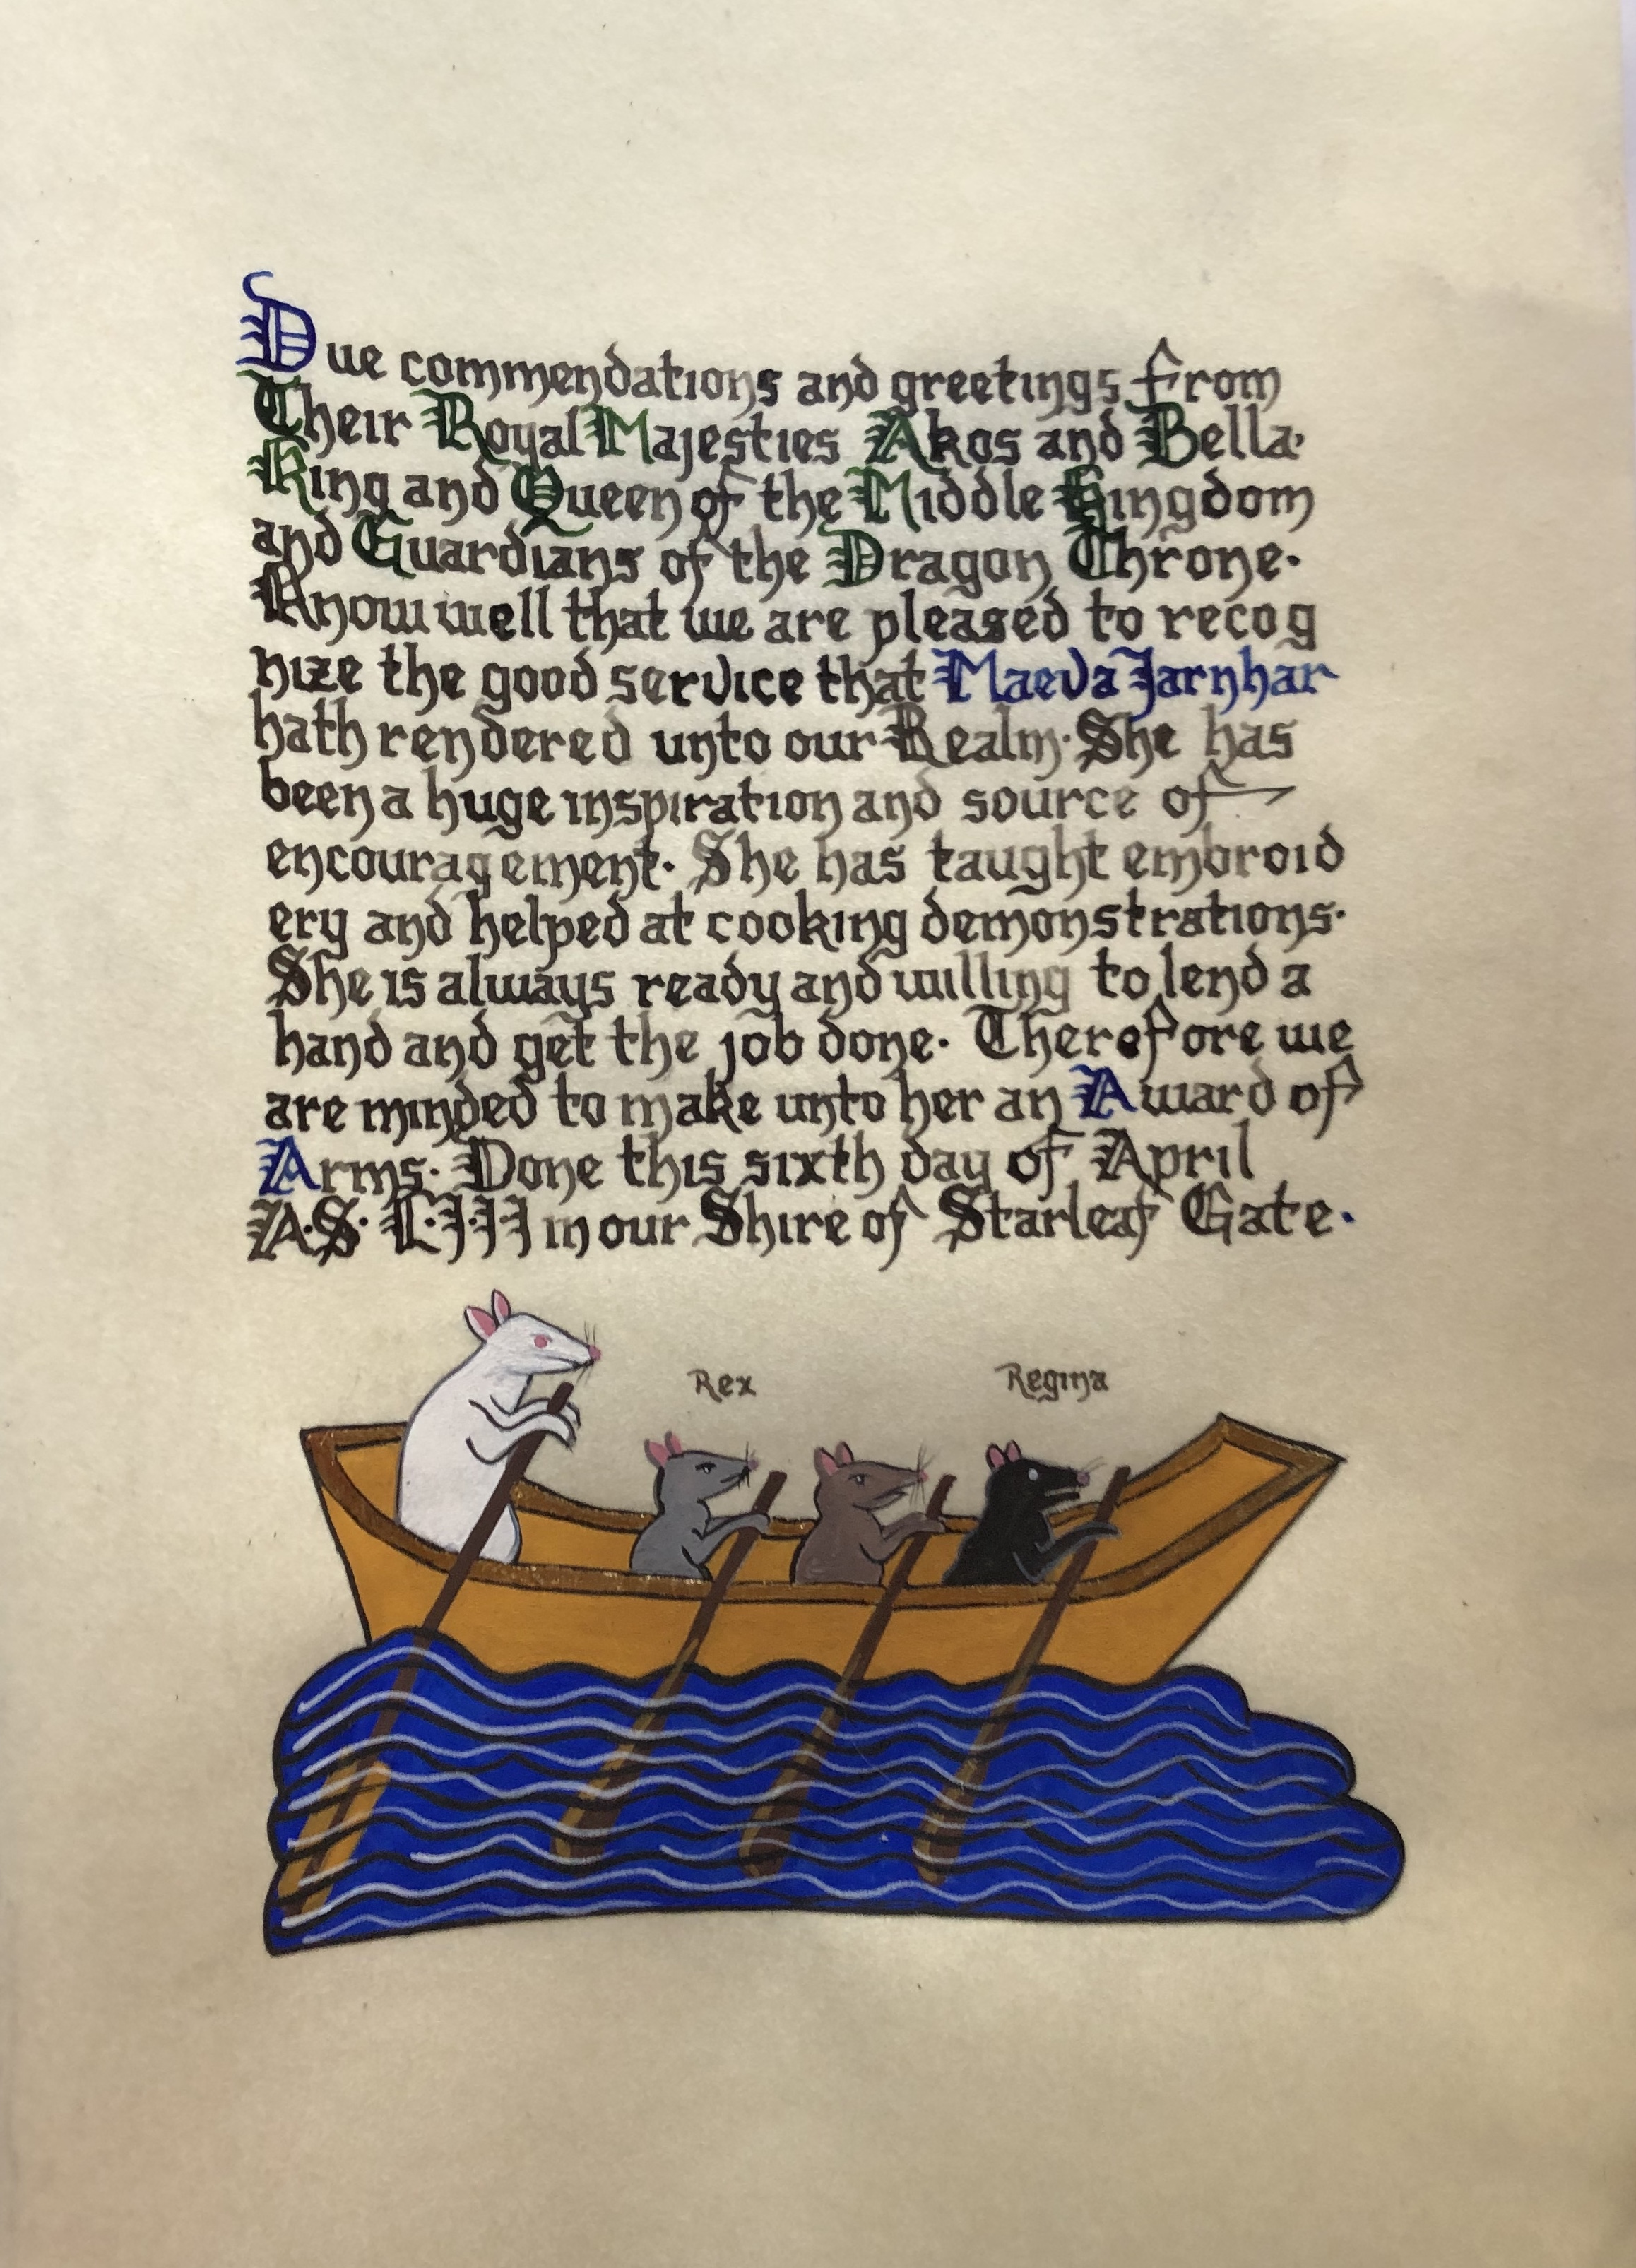 Due commendations and greetings from
Their Royal Majesties Akos and Bella·
King and Queen of the Middle Kingdom
and Guardians of the Dragon Throne·
Know well that we are pleased to recog
nize the good service that Maeva Jarnhar
hath rendered unto our Realm· She has
been a huge inspiration and source of
encouragement· She has taught embroid
ery and helped at cooking demonstrations·
She is always ready and willing to lend a
hand and get the job done· Therefore we
are minded to make unto her an Award of
Arms· Done this sixth day of April
A·S· L·I·I·I in our Shire of Starleaf Gate·
Rex Regina